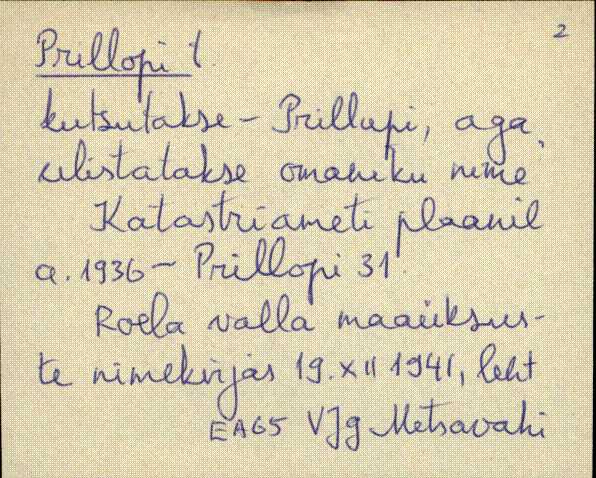 2
Prillopi t.
kutsutakse - Prillupi, aga
ülistatakse omaniku nime
Katastriameti plaanil
a. 1936 - Prillopi 31
Roela valla maaüksus-
te nimekirjas 19. XII 1941, leht
EA65 VJg Metsavahi